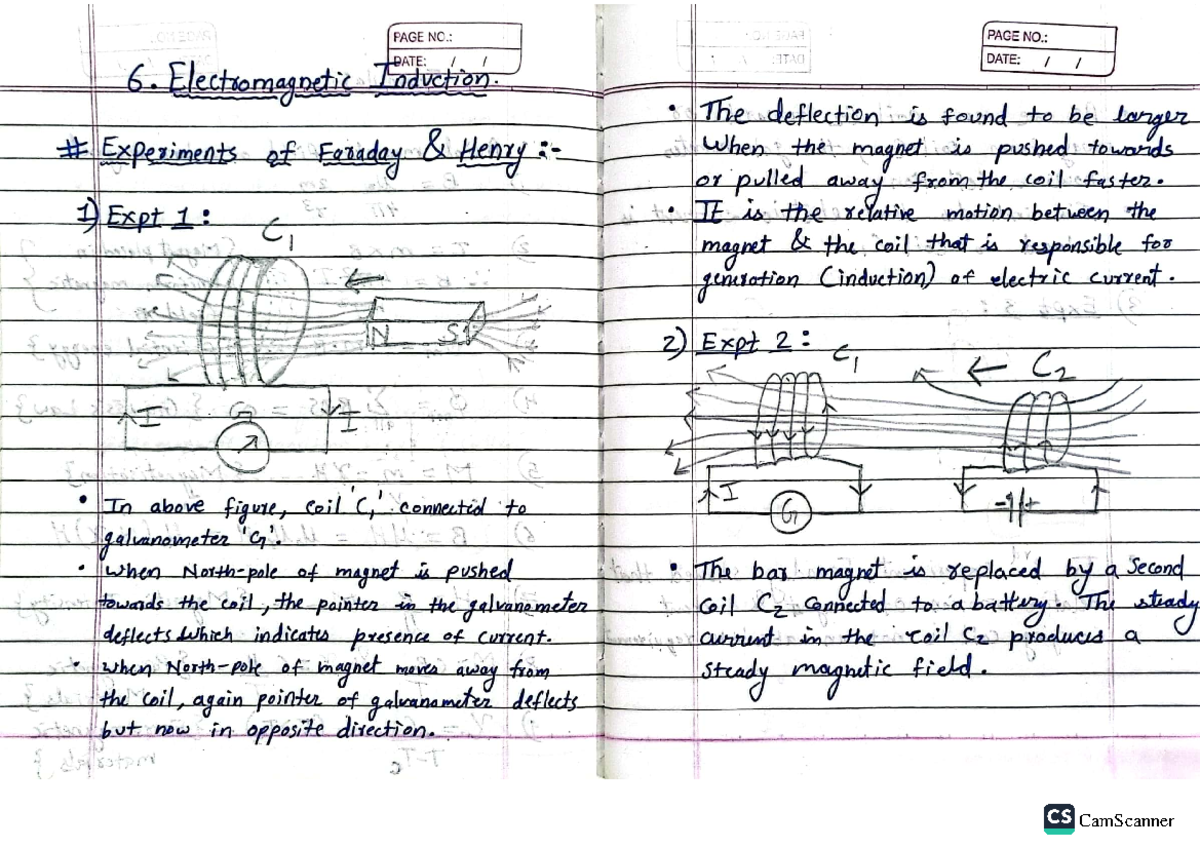 PAGE NO.:
DATE: / /
6. Electromagnetic Induction.
# Experiments of Faraday & Henry :-
1) Expt 1 :
C1
N S
I G I
• In above figure, coil 'C1' connected to
galvanometer 'G'.
• When North-pole of magnet is pushed
towards the coil, the pointer in the galvanometer
deflects which indicates presence of current.
• When North-pole of magnet moves away from
the coil, again pointer of galvanometer deflects
but now in opposite direction.
PAGE NO.:
DATE: / /
• The deflection is found to be larger
when the magnet is pushed towards
or pulled away from the coil faster.
• It is the relative motion between the
magnet & the coil that is responsible for
generation (induction) of electric current.
2) Expt 2 :
C1 C2
I G - +
• The bar magnet is replaced by a second
coil C2 connected to a battery. The steady
current in the coil C2 produces a
steady magnetic field.
CS CamScanner